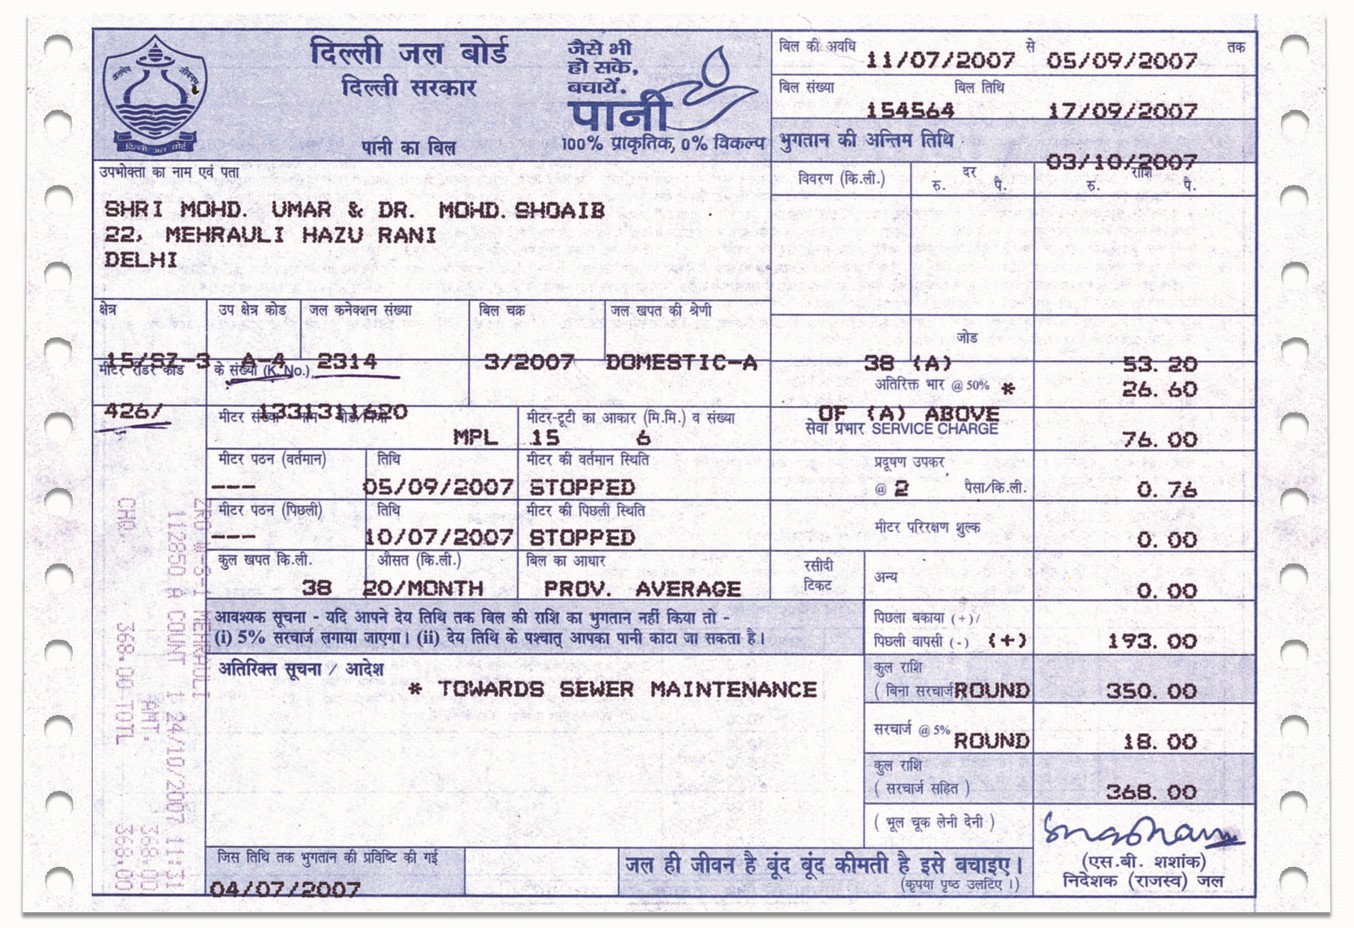 दिल्ली जल बोर्ड
दिल्ली सरकार
पानी का बिल
जैसे भी
हो सके,
बचायें.
पानी
100% प्राकृतिक, 0% विकल्प
बिल की अवधि 11/07/2007 से 05/09/2007 तक
बिल संख्या 154564 बिल तिथि 17/09/2007
भुगतान की अन्तिम तिथि 03/10/2007
विवरण (कि.ली.) दर रु. पै. राशि रु. पै.
उपभोक्ता का नाम एवं पता
SHRI MOHD. UMAR & DR. MOHD.SHOAIB
22, MEHRAULI HAZU RANI
DELHI
क्षेत्र उप क्षेत्र कोड जल कनेक्शन संख्या बिल चक्र जल खपत की श्रेणी
15/SZ-3 A-4 2314 3/2007 DOMESTIC-A
जोड
38 (A) 53.20
मीटर रीडर कोड के संख्या (K.No.)
426/ 1331311620
अतिरिक्त भार @ 50% * 26.60
OF (A) ABOVE
सेवा प्रभार SERVICE CHARGE 76.00
मीटर संख्या
MPL
मीटर-टूटी का आकार (मि.मि.) व संख्या
15 6
मीटर पठन (वर्तमान) तिथि मीटर की वर्तमान स्थिति
--- 05/09/2007 STOPPED
प्रदूषण उपकर
@ 2 पैसा/कि.ली. 0.76
मीटर पठन (पिछली) तिथि मीटर की पिछली स्थिति
--- 10/07/2007 STOPPED
मीटर परिरक्षण शुल्क 0.00
कुल खपत कि.ली. औसत (कि.ली.) बिल का आधार
38 20/MONTH PROV. AVERAGE
रसीदी
टिकट
अन्य 0.00
आवश्यक सूचना - यदि आपने देय तिथि तक बिल की राशि का भुगतान नहीं किया तो -
(i) 5% सरचार्ज लगाया जाएगा। (ii) देय तिथि के पश्चात् आपका पानी काटा जा सकता है।
पिछला बकाया (+)/
पिछली वापसी (-) (+) 193.00
अतिरिक्त सूचना / आदेश
* TOWARDS SEWER MAINTENANCE
कुल राशि
( बिना सरचार्ज ROUND 350.00
सरचार्ज @ 5% ROUND 18.00
कुल राशि
( सरचार्ज सहित ) 368.00
( भूल चूक लेनी देनी )
(एस.बी. शशांक)
निदेशक (राजस्व) जल
जिस तिथि तक भुगतान की प्रविष्टि की गई
04/07/2007
जल ही जीवन है बूंद बूंद कीमती है इसे बचाइए।
(कृपया पृष्ठ उलटिए।)
MEHRAULI
112850 A COUNT 1 24/10/2007 11:31
AMT. 368.00
CHQ. 368.00 TOTL 368.00